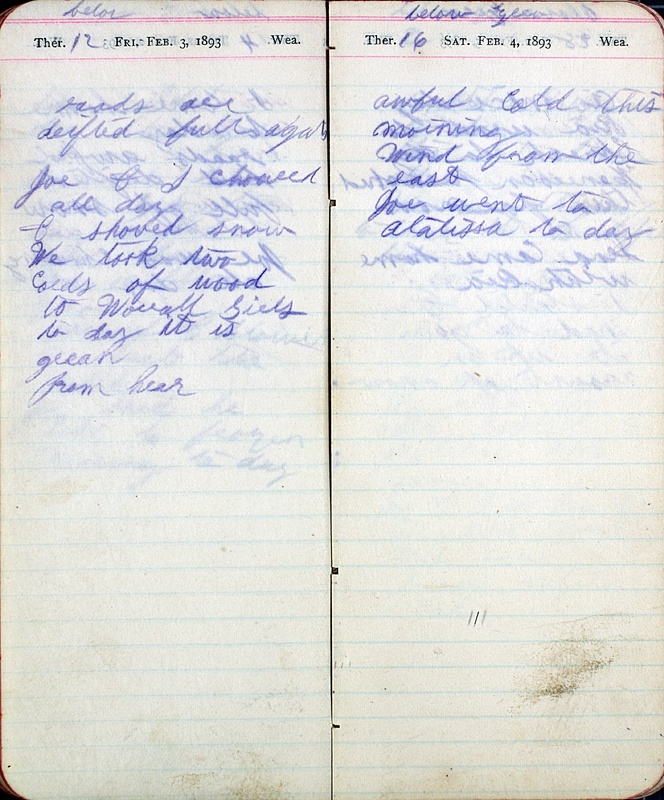 below
Ther. 12 Fri. Feb. 3, 1893 Wea.
roads are
drifted full again
Joe & I chored
all day
I shoved snow
We took two
Colds of wood
to Girls
to day it is
from hear
to day
below
Ther. 16 Sat. Feb. 4, 1893 Wea.
awful Cold this
morning
Wind from the
east
Joe went to
alalissa to day